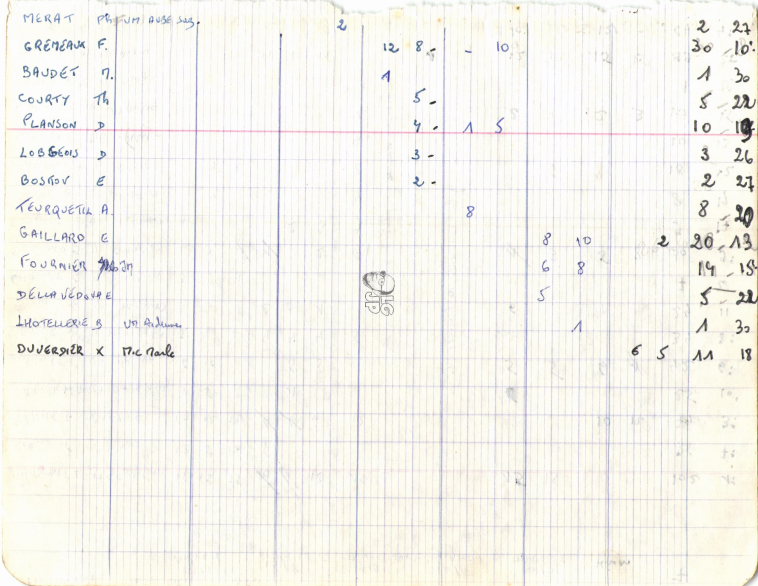 MERAT Ph UM AUBE Saz. 2 2 27
GRÉMEAUX F. 12 8 - - 10 30 10
BAUDET M. 1 1 30
COURTY Th 5 - 5 22
PLANSON D 4 - 1 5 10 19
LOBGEOIS D 3 - 3 26
BOSTOV E 2 - 2 27
TEURQUETIL A. 8 8 20
GAILLARD E 8 10 2 20 13
FOURNIER JM 6 8 14 15
DELLA VEDOVA E 5 5 22
LHOTELLERIE B UM Ardennes 1 1 30
DUVERDIER X M.C Marle 6 5 11 18